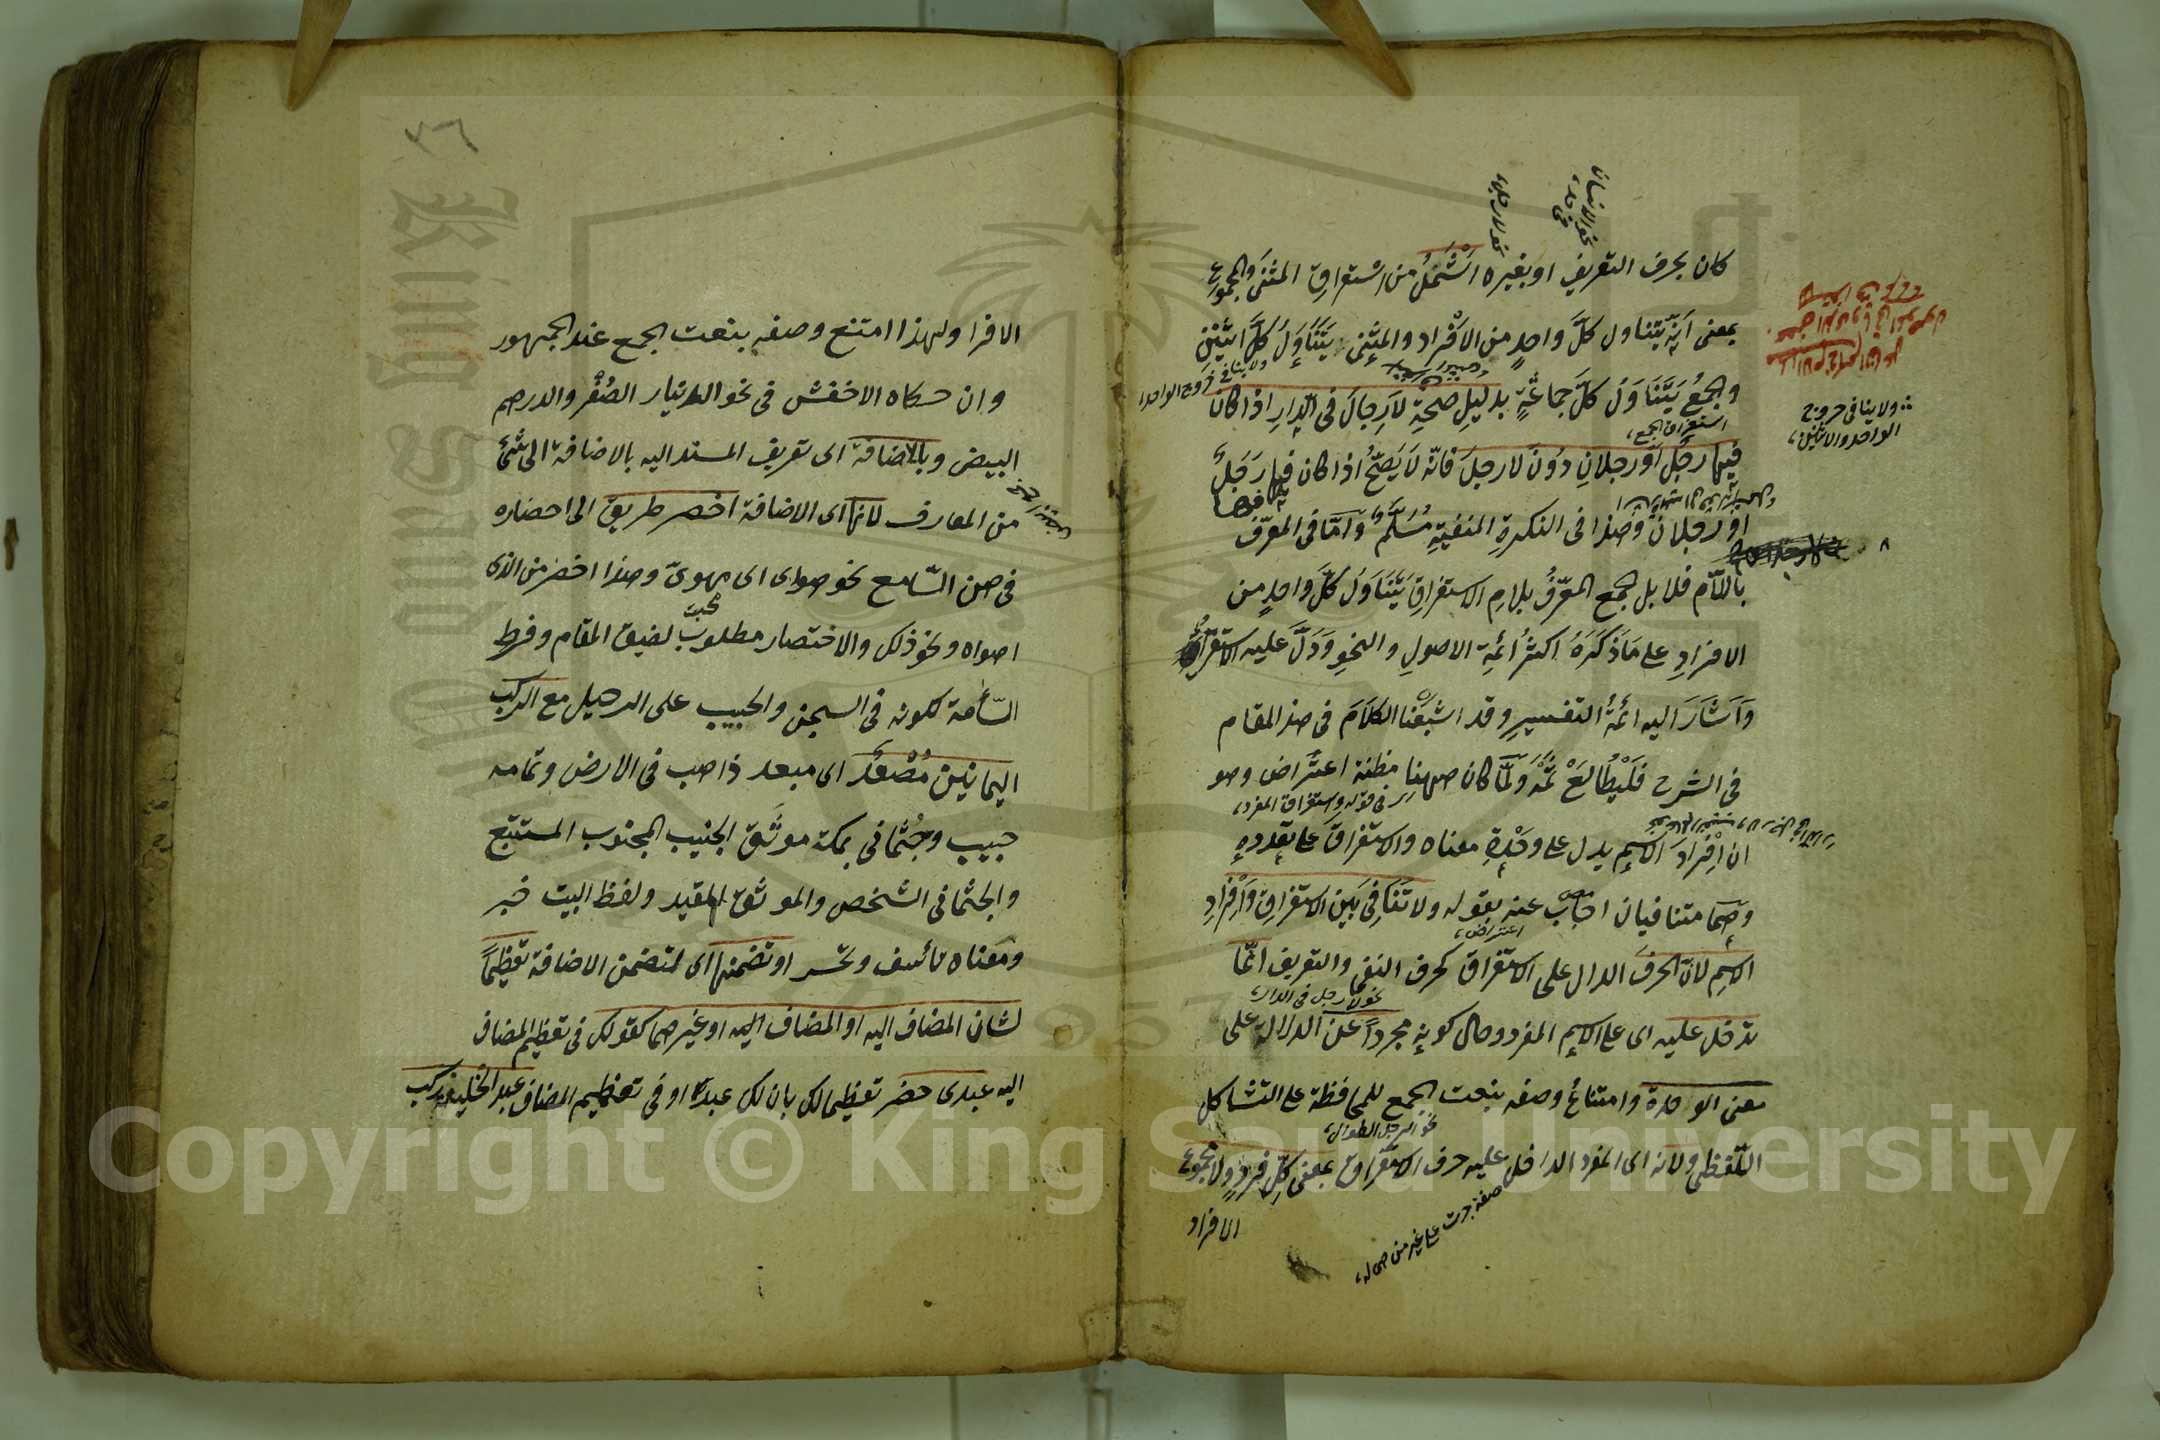 كان بحرف التعريف او بغيره اشمل من استغراق المثنى والمجموع
بمعنى انه يتناول كل واحد من الافراد والمثنى يتناول كل اثنين
والجمع يتناول كل جماعة بدليل صحة لا رجال فى الدار اذا كان
فيها رجل او رجلان دون لا رجل فانه لا يصح اذا كان فيها رجل
او رجلان وهذا فى النكرة المنفية مسلم واما فى المعرف
باللام فلا بل الجمع المعرف بلام الاستغراق يتناول كل واحد من
الافراد على ما ذكره اكثر ائمة الاصول والنحو ودل عليه الاستقراء
واشار اليه ائمة التفسير وقد اشبعنا الكلام فى هذا المقام
فى الشرح فليطالع ثمه ولما كان ههنا مظنة اعتراض وهو
ان افراد الاسم يدل على وحدة معناه والاستغراق على تعدده
وهما متنافيان اجاب عنه بقوله ولا تنافى بين الاستغراق وافراد
الاسم لان الحرف الدال على الاستغراق كحرف النفى والتعريف انما
تدخل عليه اى على الاسم المفرد حال كونه مجردا عن الدلالة على
معنى الوحدة وامتناع وصفه بنعت الجمع للمحافظة على التشاكل
اللفظى ولانه اى المفرد الداخل عليه حرف الاستغراق بمعنى كل فرد ولا مجموع
الافراد
نحو لا رجل فى الدار
نحو الرجل الطوال
استغراق الجمع
اعتراض
فى قوله واستغراق المفرد
ولا ينافى خروج
الواحد والاثنين
صفة جرت على غير من هى له
٧٦
الافرا ولهذا امتنع وصفه بنعت الجمع عند الجمهور
وان حكاه الاخفش فى نحو الدينار الصفر والدرهم
البيض وبالاضافة اى تعريف المسند اليه بالاضافة الى شئ
من المعارف لانها اى الاضافة اخصر طريق الى احضاره
فى ذهن السامع نحو هواى اى مهوى وهذا اخصر من الذى
اهواه ونحو ذلك والاختصار مطلوب لضيق المقام وفرط
السآمة لكونه فى السجن والحبيب على الرحيل مع الركب
اليمانين مصعد اى مبعد ذاهب فى الارض وتمامه
جنيب وجثمانى بمكة موثق الجنيب المجنوب المستتبع
والجثمانى الشخص والموثق المقيد ولفظ البيت خبر
ومعناه تأسف وتحسر او تضمنها اى لتضمن الاضافة تعظيما
لشان المضاف اليه او المضاف اليه او غيرهما كقولك فى تعظيم المضاف
اليه عبدى حضر تعظيما لك بان لك عبدا او فى تعظيم المضاف عبد الخليفة ركب
Copyright © King Saud University
King Saud
1957